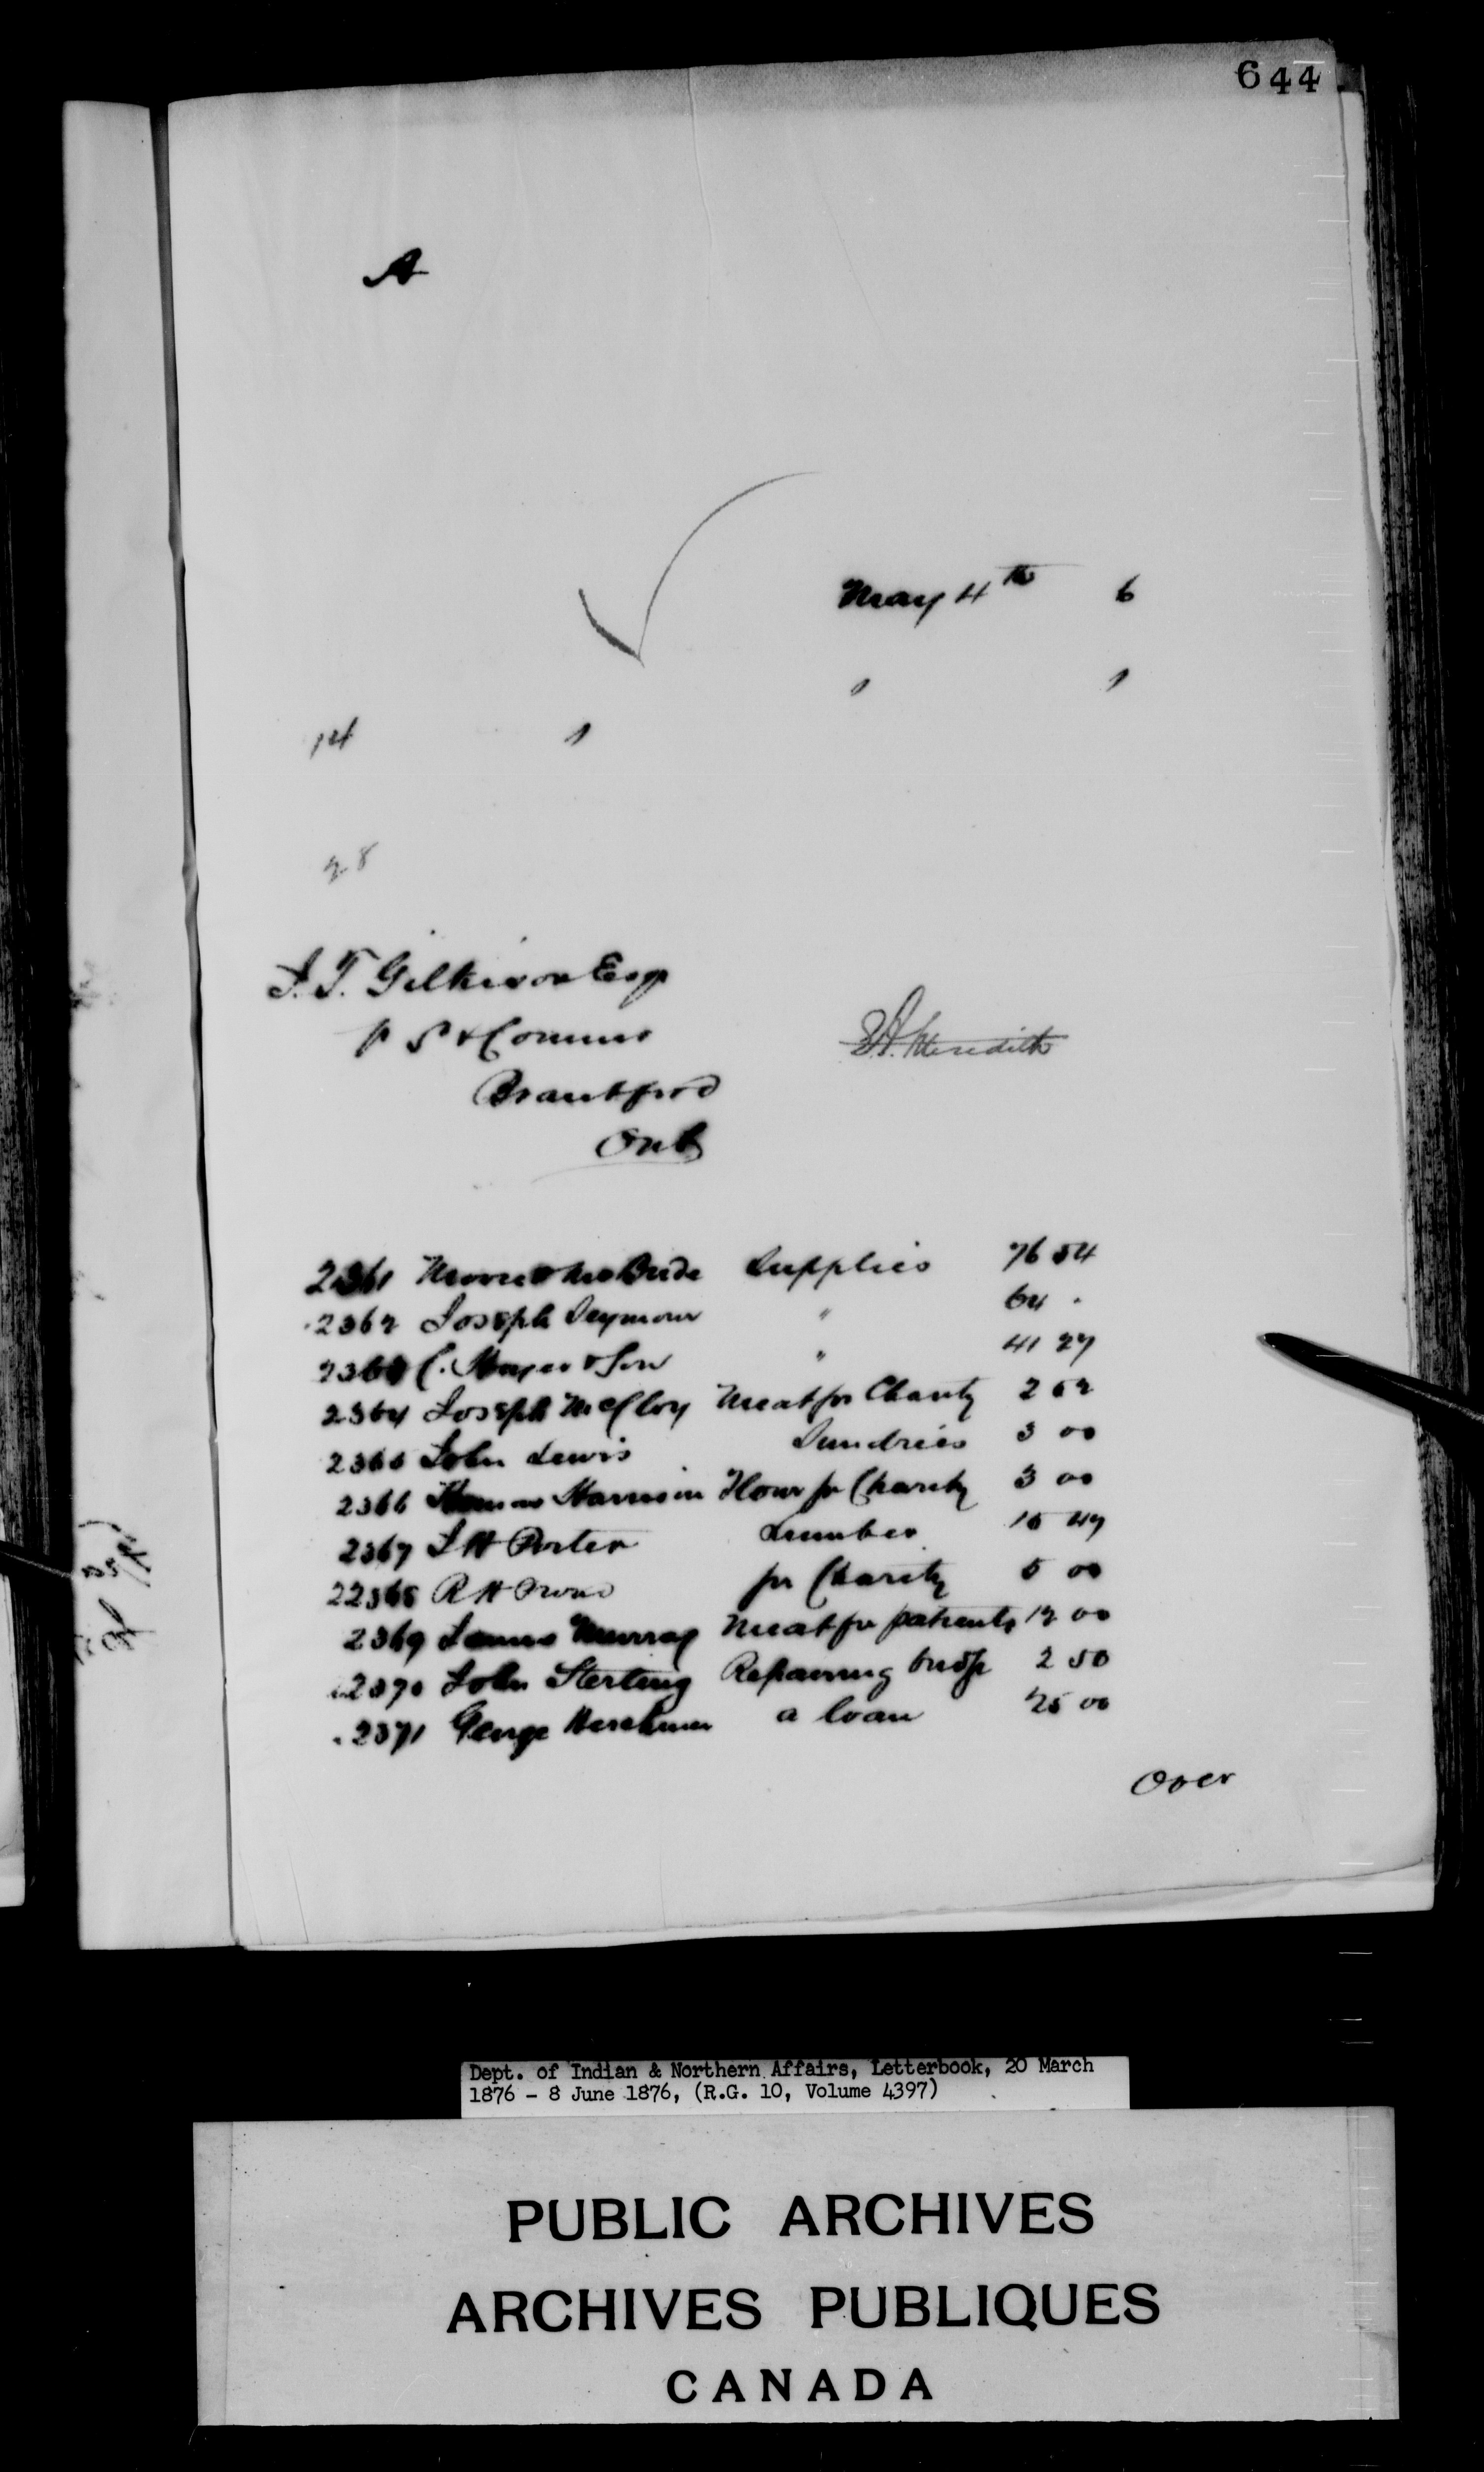 644
A
May 4th 6
" "
14 "
28
J. T. Gilkison Esqr
V S & Commr
Brantford
Ont
E A Meredith
2361 McBride Supplies 76 54
2362 Joseph Seymour " 64 -
2363 C. & Son " 41 27
2364 Joseph Meat for Charity 2 52
2365 John Lewis Sundries 3 00
2366 Thomas Harrison Flour for Charity 3 00
2367 Porter Lumber 15 47
22368 R H for Charity 5 00
2369 James Murray Meat for patients 12 00
2370 John Sterling Repairing bridge 2 50
2371 George a loan 25 00
Over
Dept. of Indian & Northern Affairs, Letterbook, 20 March
1876 - 8 June 1876, (R.G. 10, Volume 4397)
PUBLIC ARCHIVES
ARCHIVES PUBLIQUES
CANADA